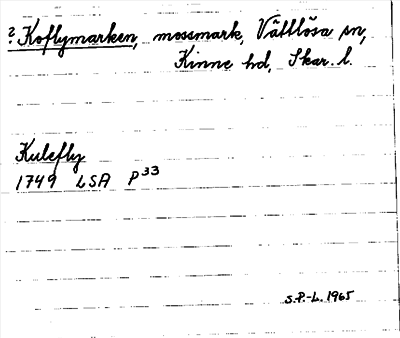 ? Koflymarken, mossmark, Vättlösa sn,
Kinne hd, Skar. l.
Kulefly
1749 LSA P33
S.P.-L. 1965